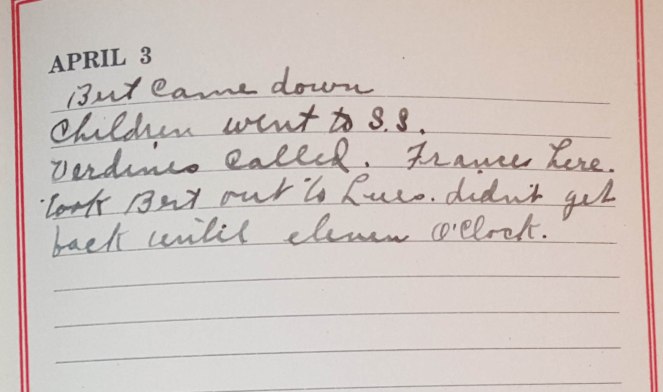 APRIL 3
Bert Came down
Children went to S.S.
Verdines Called. Frances here.
took Bert out to Lues. didn't get
back until eleven O'Clock.